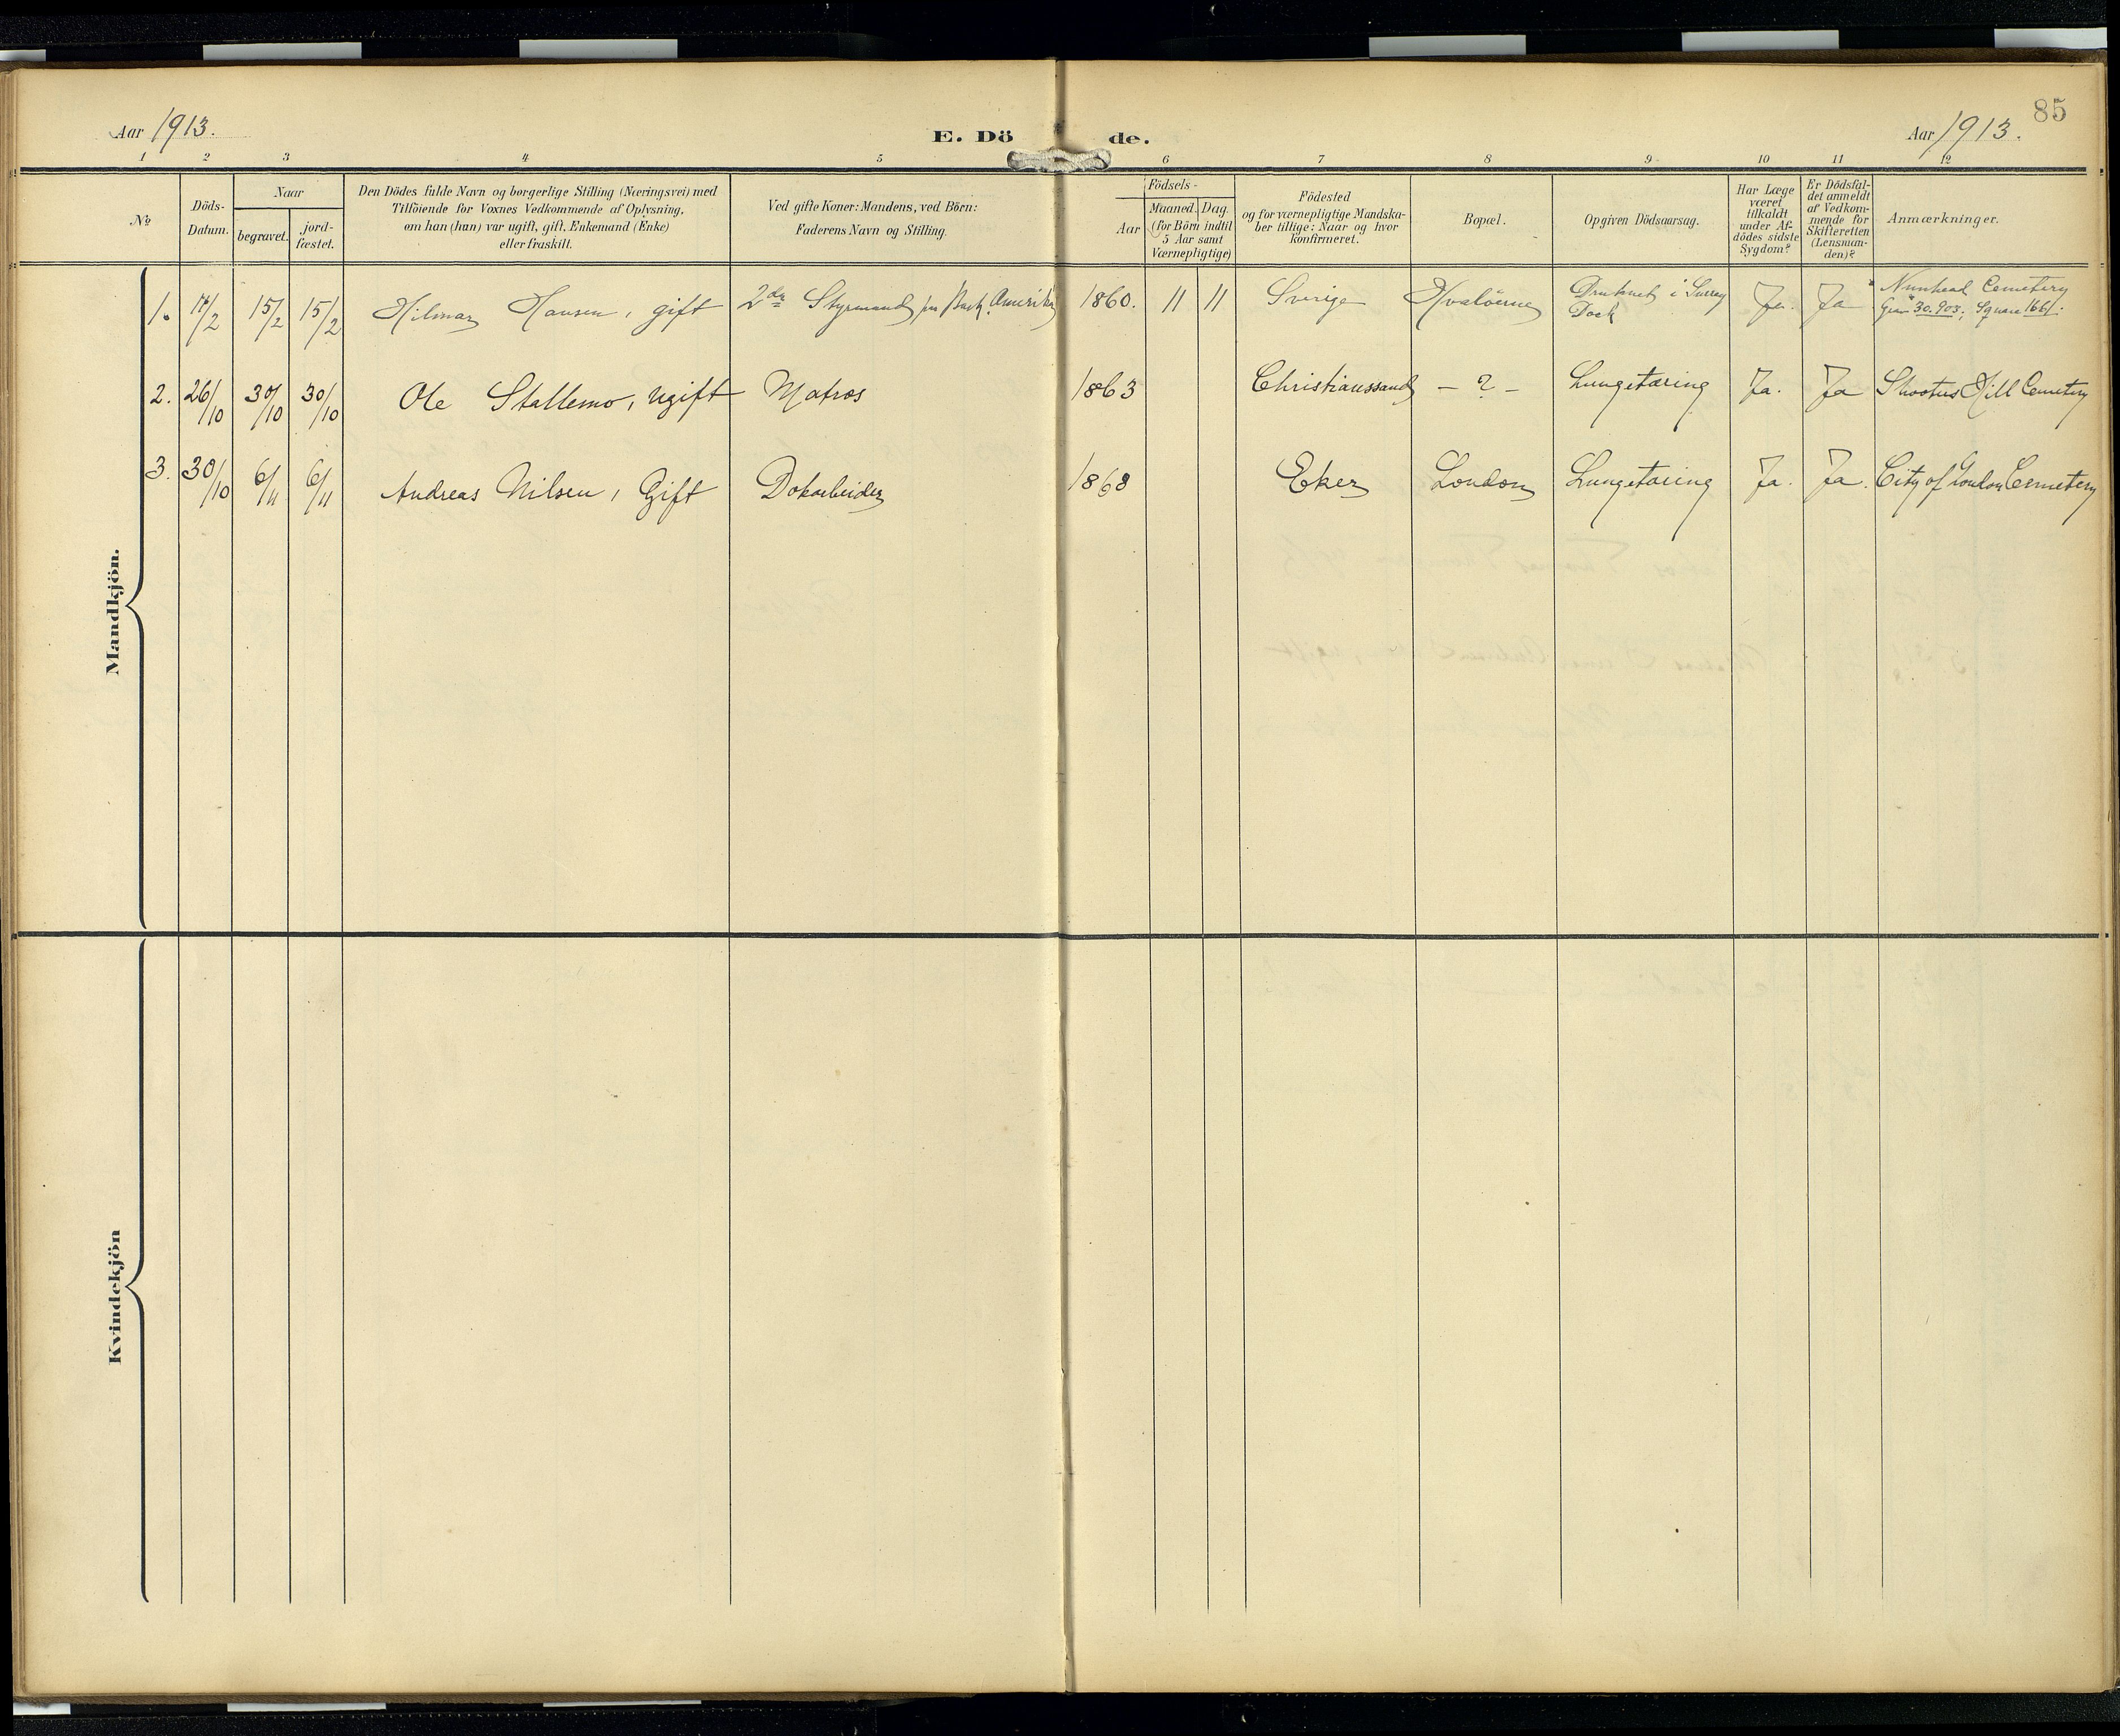 85
Aar 1913. E. Dö de. Aar 1913.
1 2 3 4 5 6 7 8 9 10 11 12
No.
Döds-
Datum.
Naar
begravet.
jord-
fæstet.
Den Dödes fulde Navn og borgerlige Stilling (Næringsvei) med
Tilföiende for Voxnes Vedkommende af Oplysning,
om han (hun) var ugift, gift, Enkemand (Enke)
eller fraskilt.
Ved gifte Koner: Mandens, ved Börn:
Faderens Navn og Stilling.
Födsels-
Aar
Maaned. Dag.
(for Börn indtil
5 Aar samt
Værnepligtige)
Födested
og for værnepligtige Mandska-
ber tillige: Naar og hvor
konfirmeret.
Bopæl.
Opgiven Dödsaarsag.
Har Læge
været
tilkaldt
under Af-
dödes sidste
Sygdom?
Er Dödsfal-
det anmeldt
af Vedkom-
mende for
Skifteretten
(Lensman-
den)?
Anmærkninger.
Mandkjön.
1. 15/2 15/2 Hilmar Hansen, gift 2den Styrmand Bark "Amerika" 1860. 11 11 Sverige Hvalöerne Druknet i Surrey Ja. Ja Nunhead Cemetery
Dock Grav 30.903; Square 166/.
2. 26/10 30/10 30/10 Ole Stallemo, ugift Matros 1863 Christianssand - ? - Lungetæring Ja. Ja Shooters Hill Cemetery
3. 30/10 6/11 6/11 Andreas Nilsen, Gift Dokarbeider 1868 Eker London Lungetæring Ja. Ja. City of London Cemetery
Kvindekjön